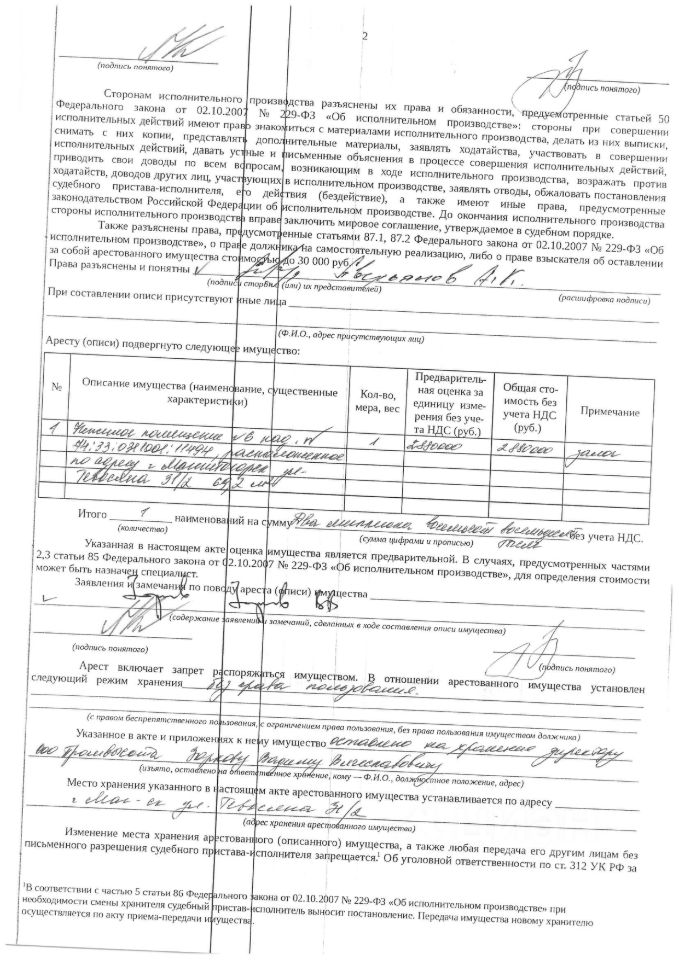 2
(подпись понятого)
(подпись понятого)
Сторонам исполнительного производства разъяснены их права и обязанности, предусмотренные статьей 50
Федерального закона от 02.10.2007 № 229-ФЗ «Об исполнительном производстве»: стороны при совершении
исполнительных действий имеют право знакомиться с материалами исполнительного производства, делать из них выписки,
снимать с них копии, представлять дополнительные материалы, заявлять ходатайства, участвовать в совершении
исполнительных действий, давать устные и письменные объяснения в процессе совершения исполнительных действий,
приводить свои доводы по всем вопросам, возникающим в ходе исполнительного производства, возражать против
ходатайств, доводов других лиц, участвующих в исполнительном производстве, заявлять отводы, обжаловать постановления
судебного пристава-исполнителя, его действия (бездействие), а также имеют иные права, предусмотренные
законодательством Российской Федерации об исполнительном производстве. До окончания исполнительного производства
стороны исполнительного производства вправе заключить мировое соглашение, утверждаемое в судебном порядке.
Также разъяснены права, предусмотренные статьями 87.1, 87.2 Федерального закона от 02.10.2007 № 229-ФЗ «Об
исполнительном производстве», о праве должника на самостоятельную реализацию, либо о праве взыскателя об оставлении
за собой арестованного имущества стоимостью до 30 000 руб.
Права разъяснены и понятны Аверьянов А.К.
(подписи сторон и (или) их представителей) (расшифровка подписи)
При составлении описи присутствуют иные лица
(Ф.И.О., адрес присутствующих лиц)
Аресту (описи) подвергнуто следующее имущество:
№ Описание имущества (наименование, существенные характеристики) Кол-во, мера, вес Предварительная оценка за единицу измерения без учета НДС (руб.) Общая стоимость без учета НДС (руб.) Примечание
1 Нежилое помещение №6 кад. № 1 2880000 2880000 залог
74:33:0311001:11494, расположенное
по адресу г. Магнитогорск ул.
Тевосяна 31/2 69,2 м2
Итого 1 наименований на сумму Два миллиона восемьсот восемьдесят тысяч без учета НДС.
(количество) (сумма цифрами и прописью)
Указанная в настоящем акте оценка имущества является предварительной. В случаях, предусмотренных частями
2,3 статьи 85 Федерального закона от 02.10.2007 № 229-ФЗ «Об исполнительном производстве», для определения стоимости
может быть назначен специалист.
Заявления и замечания по поводу ареста (описи) имущества
(содержание заявлений и замечаний, сделанных в ходе составления описи имущества)
(подпись понятого)
(подпись понятого)
Арест включает запрет распоряжаться имуществом. В отношении арестованного имущества установлен
следующий режим хранения без права пользования.
(с правом беспрепятственного пользования, с ограничением права пользования, без права пользования имуществом должника)
Указанное в акте и приложениях к нему имущество оставлено на хранение директору
ООО Промвысота Зоркову Вадиму Вячеславовичу
(изъято, оставлено на ответственное хранение, кому — Ф.И.О., должностное положение, адрес)
Место хранения указанного в настоящем акте арестованного имущества устанавливается по адресу
г. Маг-ск ул. Тевосяна 31/2
(адрес хранения арестованного имущества)
Изменение места хранения арестованного (описанного) имущества, а также любая передача его другим лицам без
письменного разрешения судебного пристава-исполнителя запрещается.¹ Об уголовной ответственности по ст. 312 УК РФ за
¹В соответствии с частью 5 статьи 86 Федерального закона от 02.10.2007 № 229-ФЗ «Об исполнительном производстве» при
необходимости смены хранителя судебный пристав-исполнитель выносит постановление. Передача имущества новому хранителю
осуществляется по акту приема-передачи имущества.